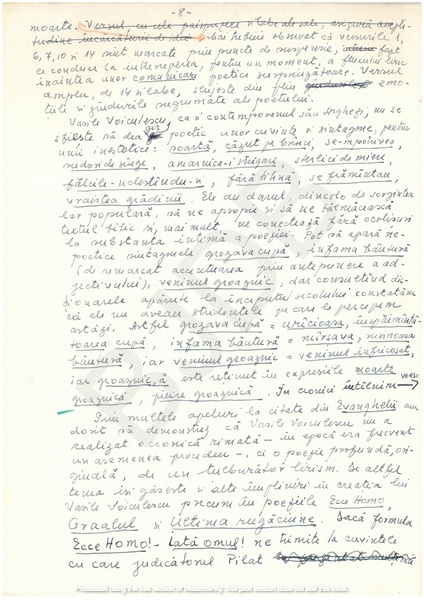 - 8 -
moarte. Versul, cu cele paisprezece silabe ale sale, asigură ampli-
tudine încărcăturii de idei Mai trebuie observat că versurile 1,
6, 7, 10 și 14 sînt marcate prin puncte de suspensie, fapt
ce conduce la întreruperea, pentru un moment, a fluxului liric
înaintea unor comunicări poetice surprinzătoare. Versul
amplu, de 14 silabe, slujește din plin gîndurilor emo-
țiile și gîndurile zbuciumate ale poetului.
Vasile Voiculescu, ca și contemporanul său Arghezi, nu se
sfiește să dea poetic unor cuvinte și sintagme, pentru
unii inestetice: soartă, căzut pe brînci, se-mpotrivea,
sudori de sînge, amarnica-i strigare, sterlici de miere,
fălcile-ncleștîndu-și, fără tihnă se frămîntau,
vraiștea grădinii. Ele au darul, dincolo de sorgintea
lor populară, să ne apropie și să ne tălmăcească
textul biblic și, mai mult, ne conectează fără ocolișuri
la substanța intimă a poeziei. Pot să apară ne-
poetice sintagmele grozava cupă, infama băutură
(de remarcat accentuarea prin antepunere a ad-
jectivului), veninul groaznic, dar consultînd dic-
ționarele apărute la începutul secolului constatăm
că ele nu aveau stridențele pe care le percepem
astăzi. Astfel grozava cupă = urîcioasa, înspăimîntă-
toarea cupă, infama băutură = mîrșava, rușinoasa
băutură, iar veninul groaznic = veninul înfricoșat,
iar groaznic,ă este reținut în expresiile moarte
groaznică, pieire groaznică. În cronici întîlnim →
Prin multele apeluri la citate din Evanghelii am
dorit să demonstrez că Vasile Voiculescu nu a
realizat o cronică rimată – în epocă era frecvent
un asemenea procedeu –, ci o poezie profundă, ori-
ginală, de un tulburător lirism. De altfel
tema își găsește și alte împliniri în creația lui
Vasile Voiculescu precum în poeziile Ecce Homo,
Graalul și Ultima negăciune. Dacă formula
Ecce Homo! – Iată Omul! ne trimite la cuvintele
cu care judecătorul Pilat